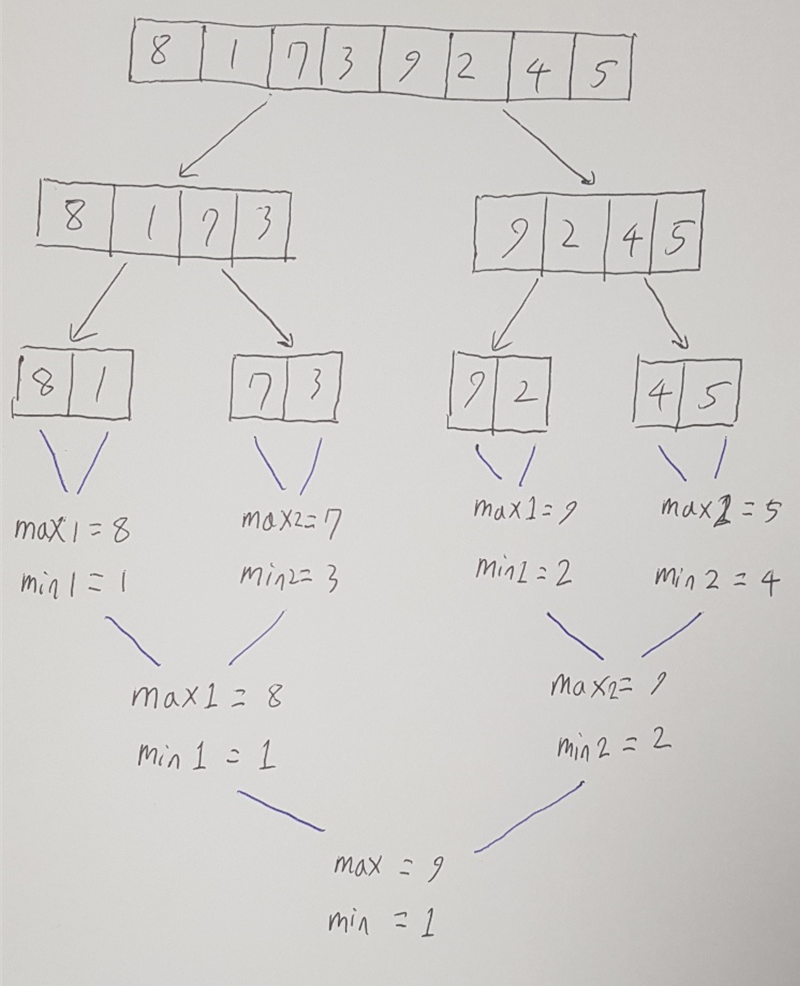 8 1 7 3 9 2 4 5
8 1 7 3
9 2 4 5
8 1
7 3
9 2
4 5
max1 = 8
min1 = 1
max2= 7
min2= 3
max1 = 9
min1 = 2
max2 = 5
min2 = 4
max1 = 8
min1 = 1
max2= 9
min2 = 2
max = 9
min = 1